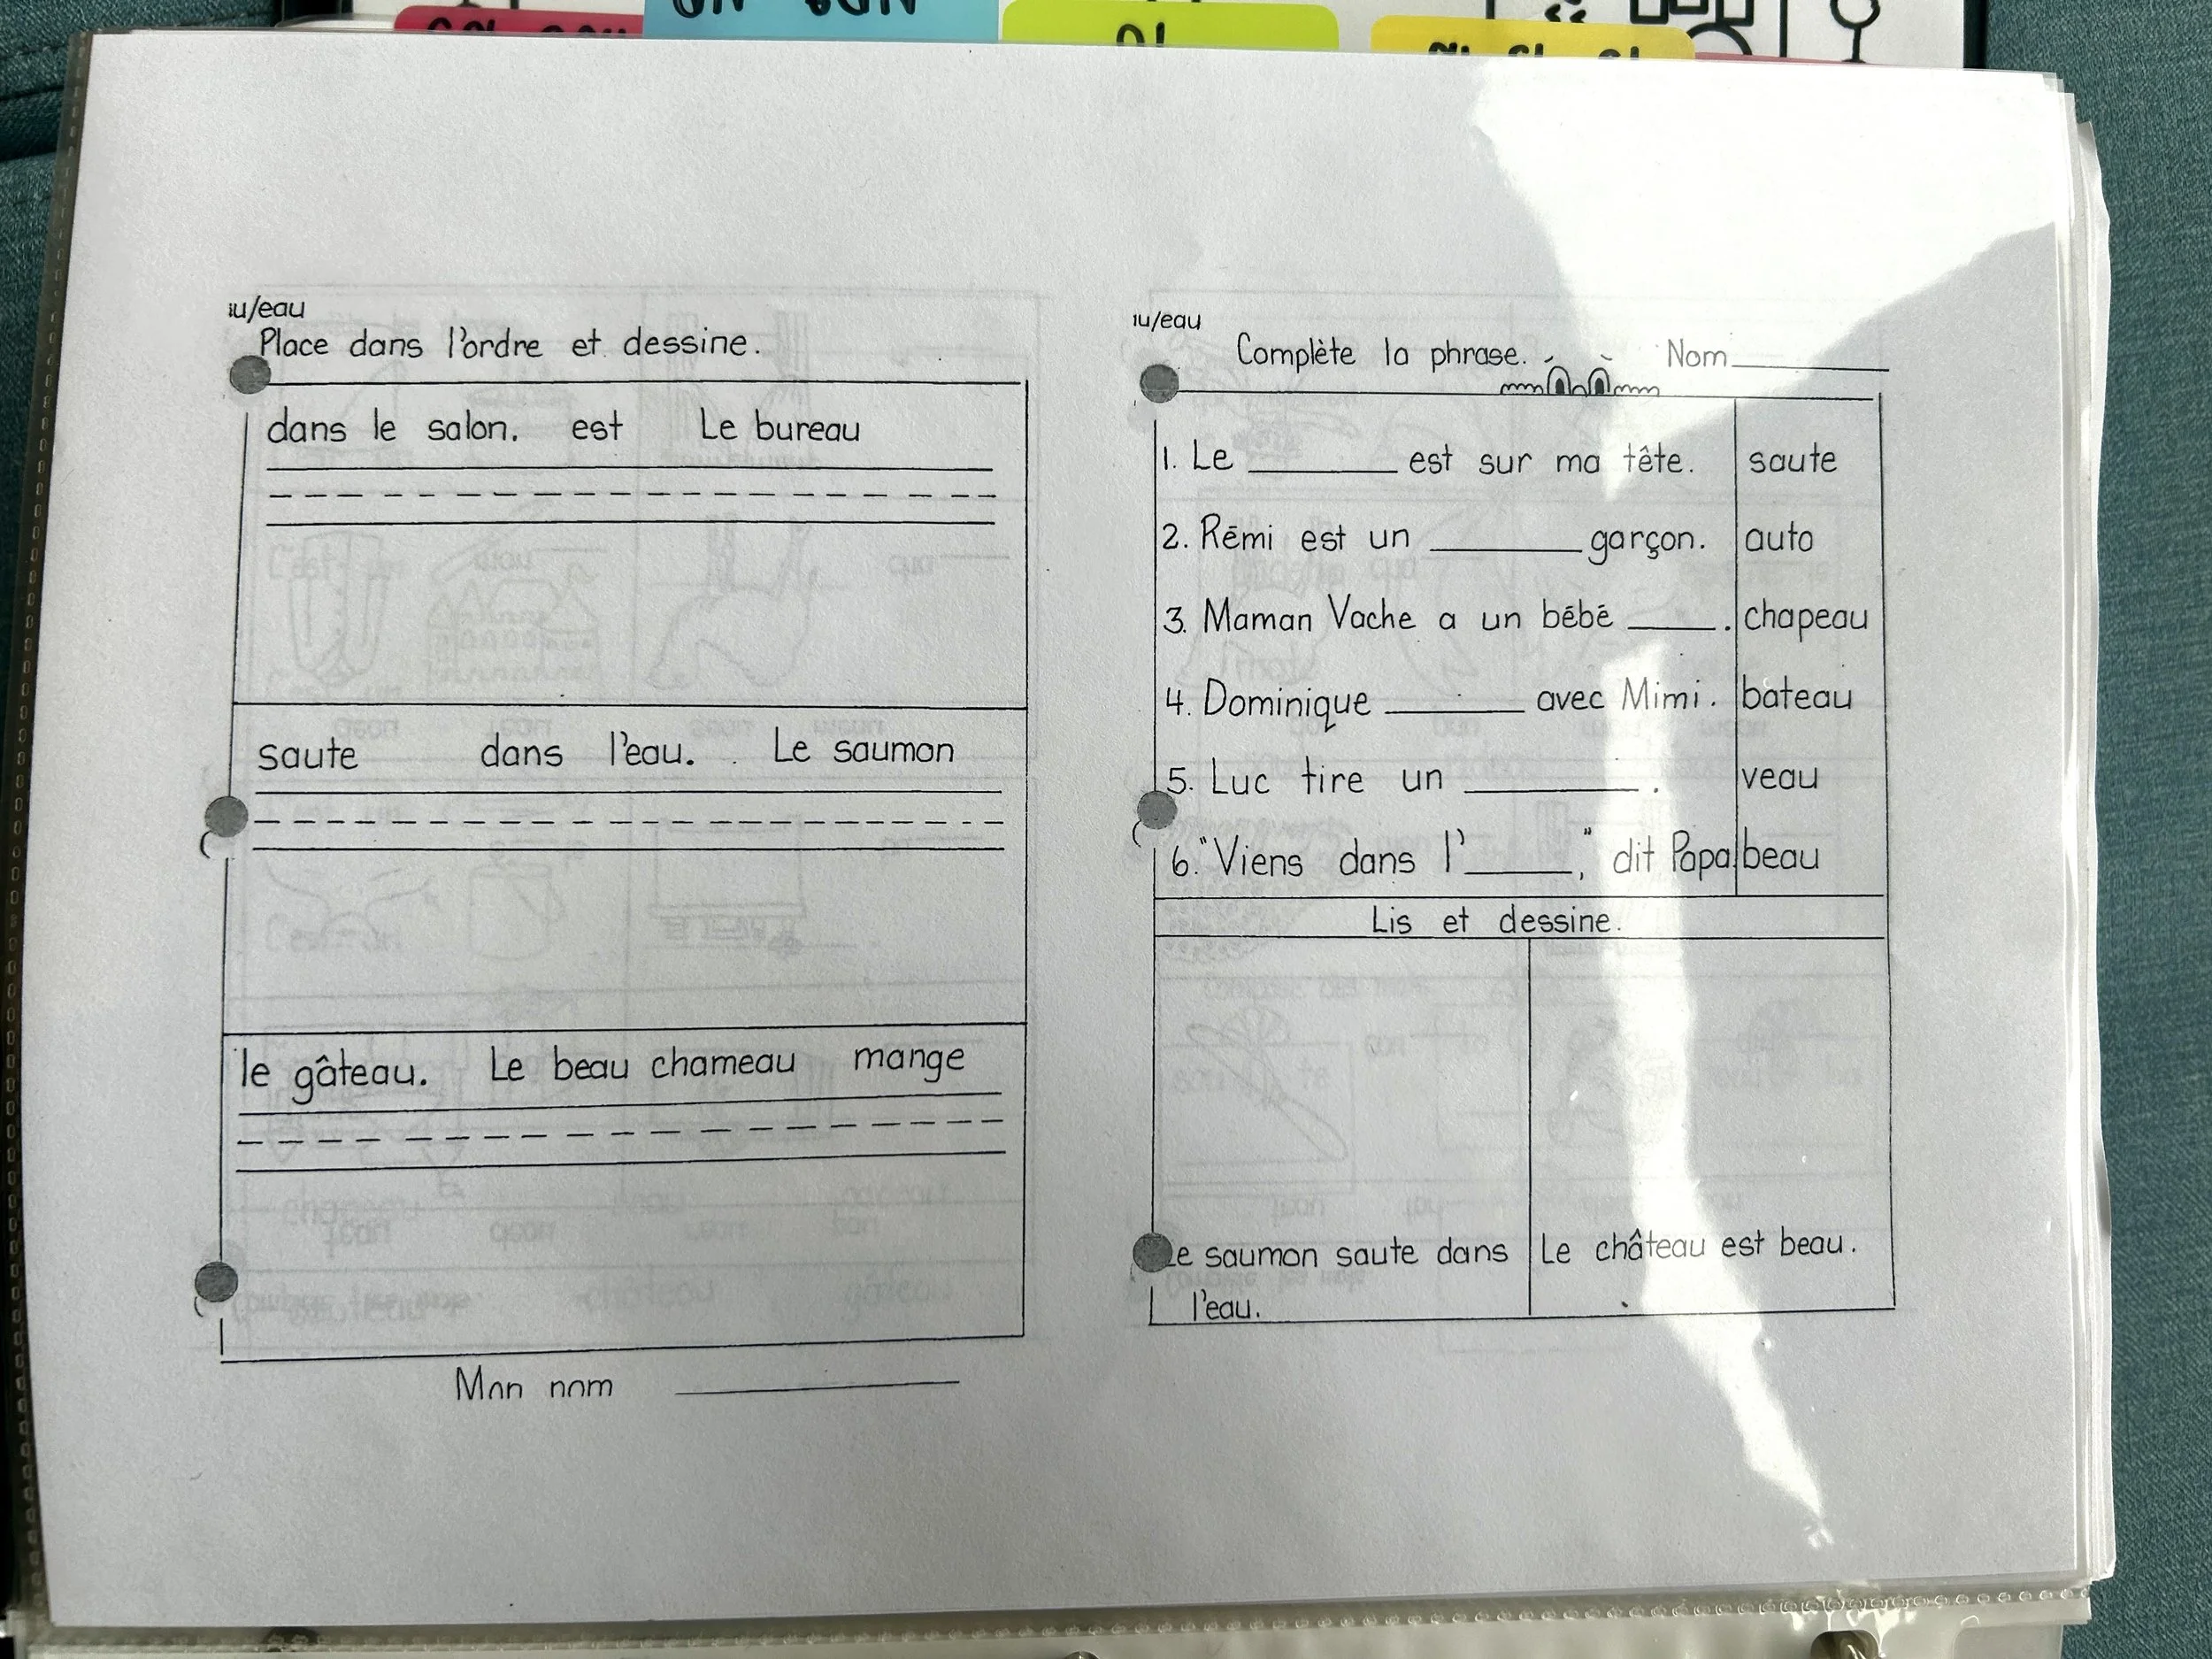 au/eau
Place dans l'ordre et dessine.
dans le salon. est Le bureau
saute dans l'eau. Le saumon
le gâteau. Le beau chameau mange
Mon nom
au/eau
Complète la phrase. Nom
1. Le ______ est sur ma tête. saute
2. Rémi est un ______ garçon. auto
3. Maman Vache a un bébé ____. chapeau
4. Dominique ______ avec Mimi. bateau
5. Luc tire un ______. veau
6. "Viens dans l'____," dit Papa beau
Lis et dessine.
Le saumon saute dans
l'eau.
Le château est beau.